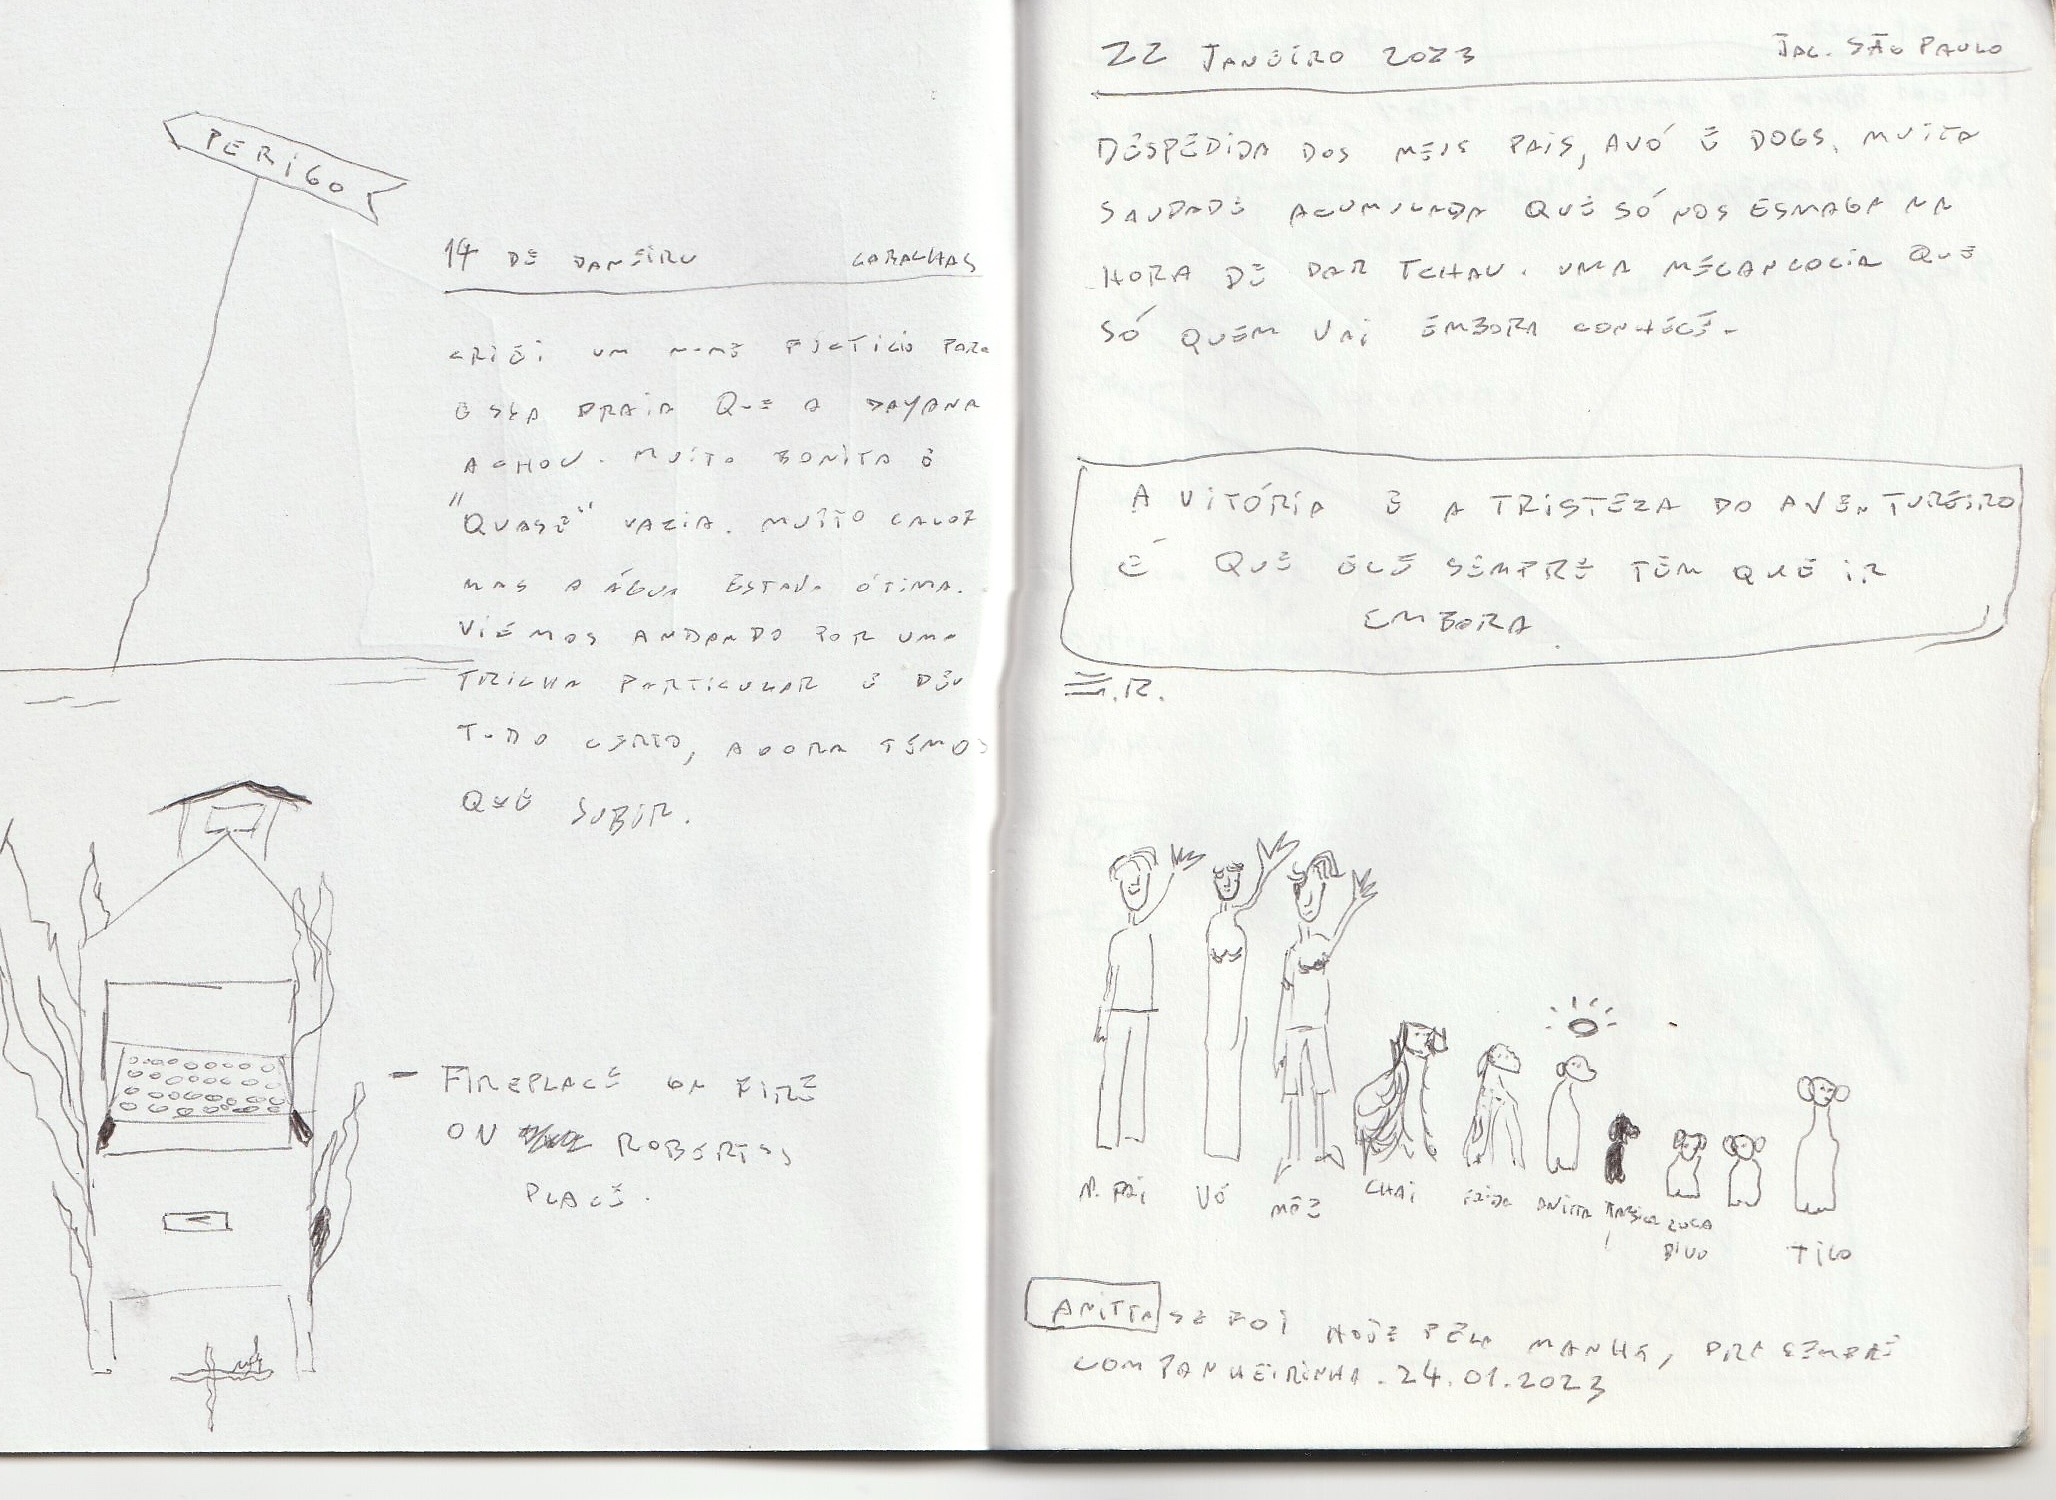 PERIGO
14 DE JANEIRO
CRIEI UM NOME FICTICIO PARA
ESSA PRAIA QUE A DAYANA
ACHOU. MUITO BONITA E
"QUASE" VAZIA. MUITO CALOR
MAS A ÁGUA ESTAVA ÓTIMA.
VIEMOS ANDANDO POR UMA
TRILHA PARTICULAR E DEU
TUDO CERTO, AGORA TEMOS
QUE SUBIR.
- FIREPLACE ON FIRE
ON ROBERTOS
PLACE.
22 JANEIRO 2023 JAC. SÃO PAULO
DESPEDIDA DOS MEUS PAIS, AVÓ E DOGS. MUITA
SAUDADE ACUMULADA QUE SÓ NOS ESMAGA NA
HORA DE DAR TCHAU. UMA MELANCOLIA QUE
SÓ QUEM VAI EMBORA CONHECE.
A VITÓRIA E A TRISTEZA DO AVENTUREIRO
É QUE ELE SEMPRE TEM QUE IR
EMBORA
E.R.
PAI VÓ MÃE CHAI FRIDA ANITTA LUCA
TICO
ANITTA SE FOI HOJE PELA MANHÃ, PRA SEMPRE
COMPANHEIRINHA. 24.01.2023